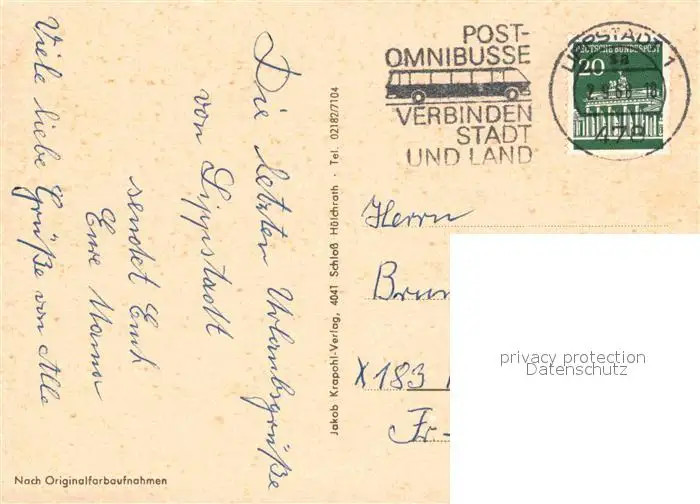 POST-
OMNIBUSSE
VERBINDEN
STADT
UND LAND
LIPPSTADT 1
DEUTSCHE BUNDESPOST
20
478
Die letzten Urlaubsgrüße
von Lippstadt
sendet Euch
Eure Mama
Viele liebe Grüße von Alle
Jakob Krapohl-Verlag, 4041 Schloß Hülchrath · Tel. 02182/7104
Herrn
X183
Fr-
Nach Originalfarbaufnahmen
privacy protection
Datenschutz